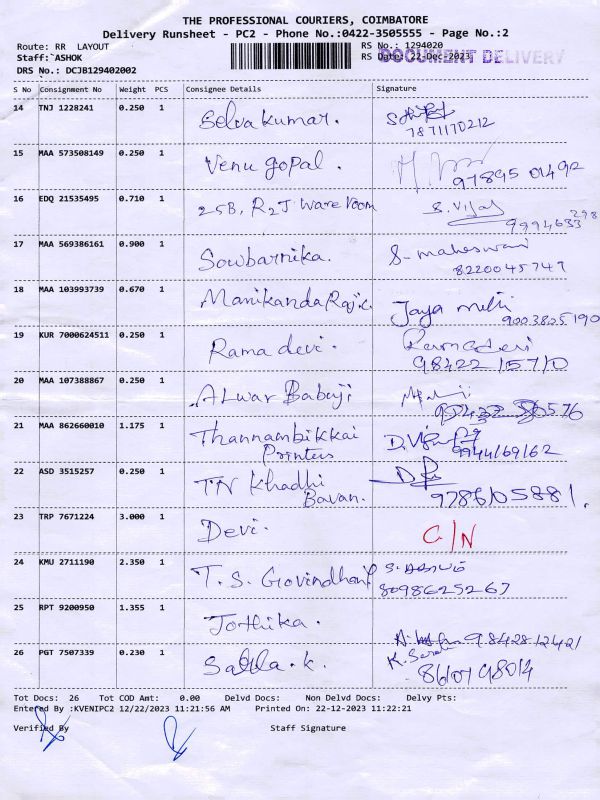 THE PROFESSIONAL COURIERS, COIMBATORE
Delivery Runsheet - PC2 - Phone No.:0422-3505555 - Page No.:2
Route: RR LAYOUT RS No.: 1294020
Staff:`ASHOK RS Date: 22-Dec-2023 DOCUMENT DELIVERY
DRS No.: DCJB129402002
S No Consignment No Weight PCS Consignee Details Signature
14 TNJ 1228241 0.250 1 Selvakumar.
7871170212
15 MAA 573508149 0.250 1 Venu gopal.
97895 01492
16 EDQ 21535495 0.710 1 25B, R2J Ware room S. Vijay
9994633298
17 MAA 569386161 0.900 1 Sowbarnika. S. maheswari
8220045747
18 MAA 103993739 0.670 1 Manikanda Raj.
9003805190
19 KUR 7000624511 0.250 1 Rama devi. Ramadevi
98422 15710
20 MAA 107388867 0.250 1 Alwar Babuji
21 MAA 862660010 1.175 1 Thannambikkai
Printers 9944169162
22 ASD 3515257 0.250 1 TN Khadhi
Bavan. 9786105881.
23 TRP 7671224 3.000 1 Devi. C/N
24 KMU 2711190 2.350 1 T. S. Govindhan
8098625267
25 RPT 9200950 1.355 1 Jothika.
9842812421
26 PGT 7507339 0.230 1 K.
Tot Docs: 26 Tot COD Amt: 0.00 Delvd Docs: Non Delvd Docs: Delvy Pts:
Entered By :KVENIPC2 12/22/2023 11:21:56 AM Printed On: 22-12-2023 11:22:21
Verified By Staff Signature